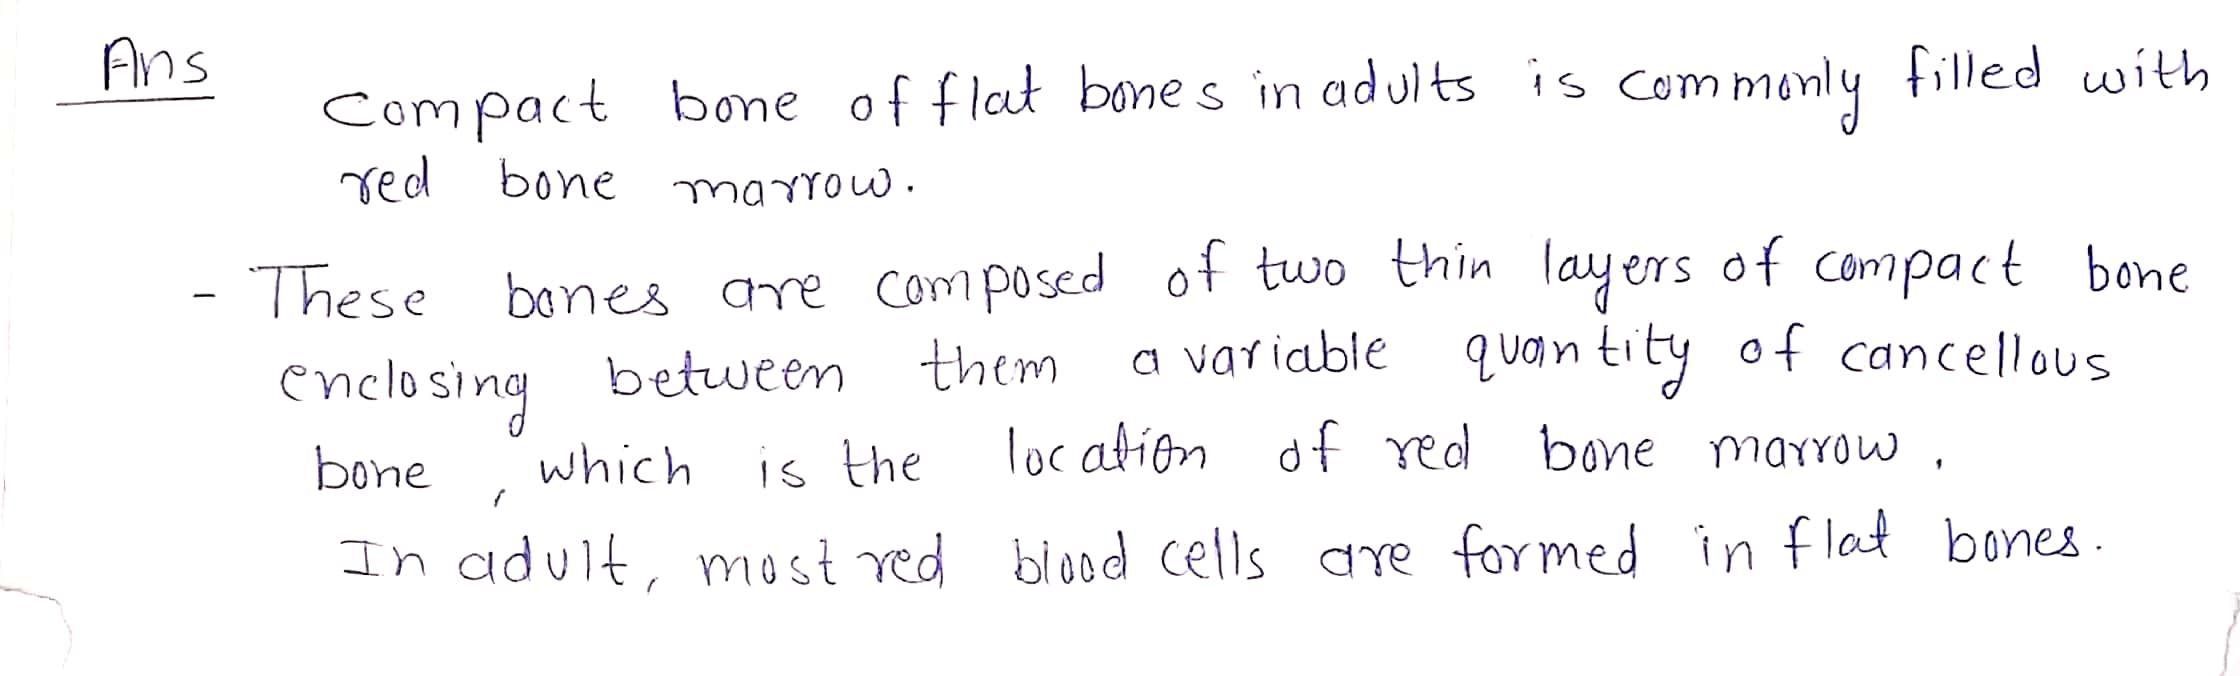 Ans
Compact bone of flat bones in adults is commonly filled with
red bone marrow.
- These bones are composed of two thin layers of compact bone
enclosing between them a variable quantity of cancellous
bone, which is the location of red bone marrow.
In adult, most red blood cells are formed in flat bones.